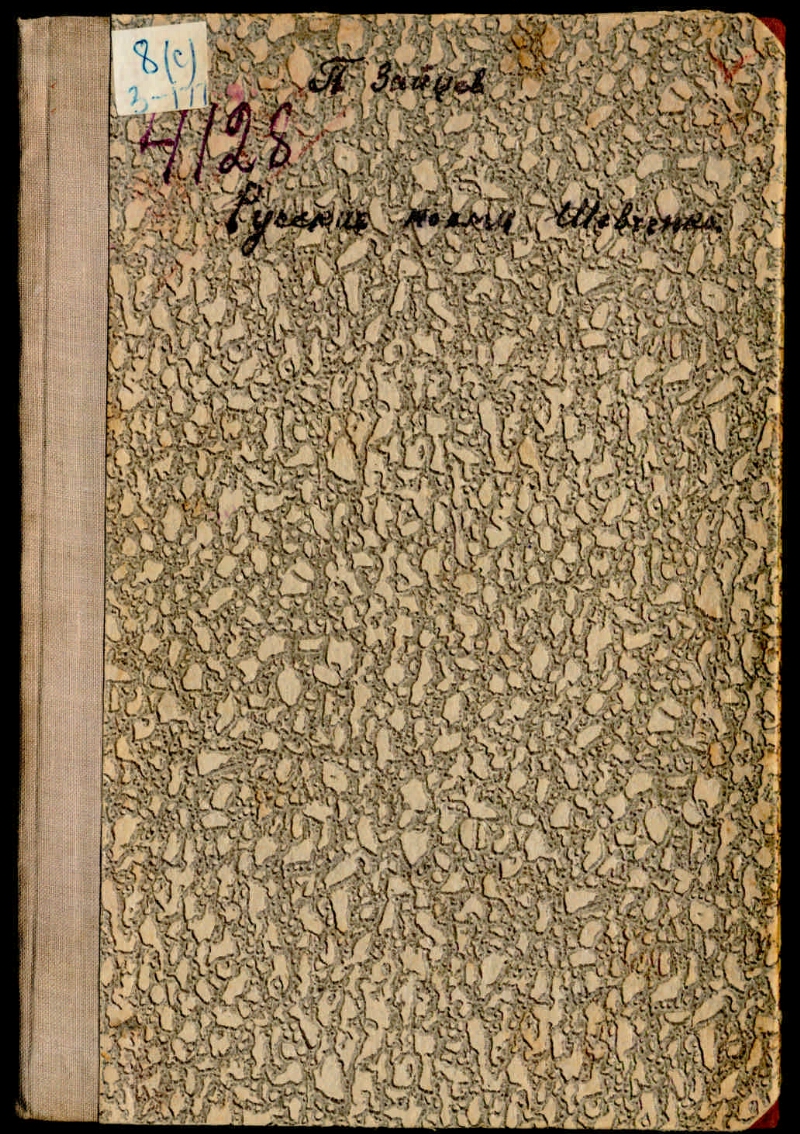 8(с)
З-177
П Зайцев
4128
Русские поэмы Шевченка.